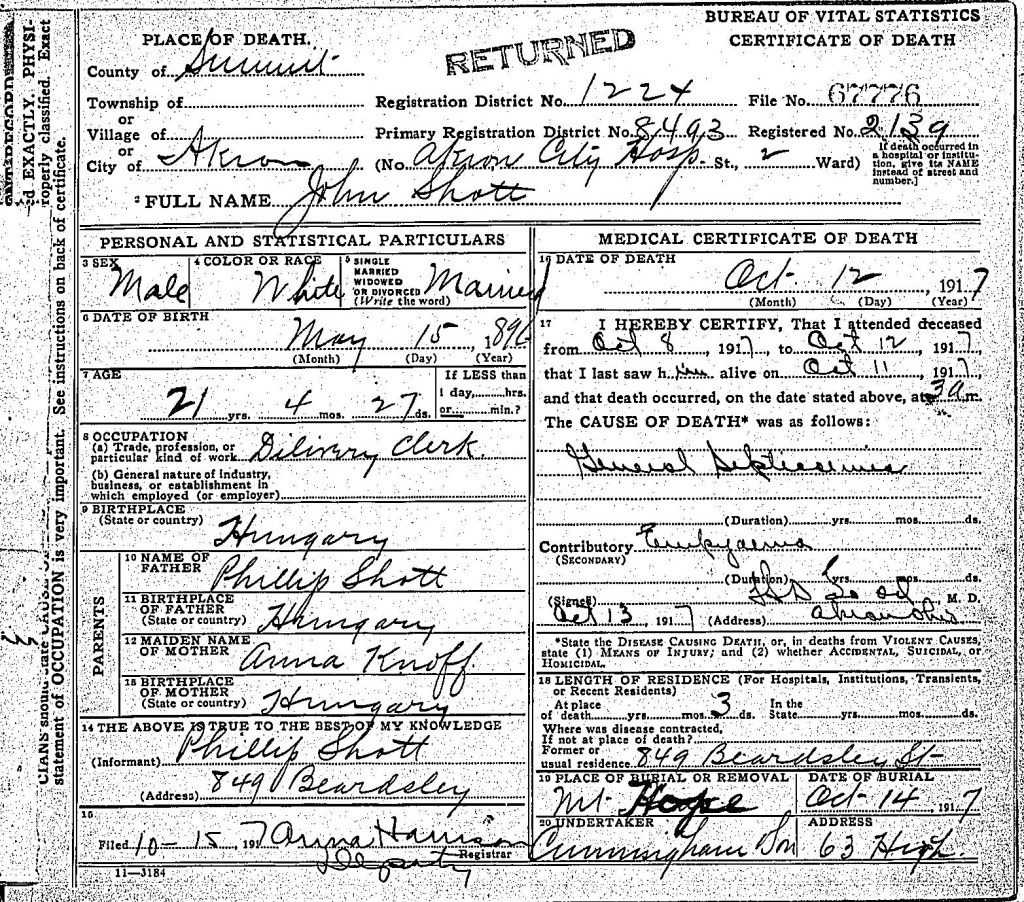 BUREAU OF VITAL STATISTICS
CERTIFICATE OF DEATH
RETURNED
PLACE OF DEATH.
County of Summit
Township of
or
Village of
or
City of Akron
Registration District No. 1224 File No. 67776
Primary Registration District No. 8493 Registered No. 2139
(No. Akron City Hosp. St., 2 Ward)
If death occurred in
a hospital or institu-
tion, give its NAME
instead of street and
number.]
2 FULL NAME John Shott
PERSONAL AND STATISTICAL PARTICULARS
3 SEX Male
4 COLOR OR RACE White
5 SINGLE
MARRIED
WIDOWED
OR DIVORCED
(Write the word) Married
6 DATE OF BIRTH
May 15, 1896
(Month) (Day) (Year)
7 AGE
21 yrs. 4 mos. 27 ds.
If LESS than
1 day, hrs.
or min.?
8 OCCUPATION
(a) Trade, profession, or
particular kind of work Dilivery Clerk.
(b) General nature of industry,
business, or establishment in
which employed (or employer)
9 BIRTHPLACE
(State or country) Hungary
PARENTS
10 NAME OF
FATHER Phillip Shott
11 BIRTHPLACE
OF FATHER
(State or country) Hungary
12 MAIDEN NAME
OF MOTHER Anna Knoff
13 BIRTHPLACE
OF MOTHER
(State or country) Hungary
14 THE ABOVE IS TRUE TO THE BEST OF MY KNOWLEDGE
(Informant) Phillip Shott
(Address) 849 Beardsley
15
Filed 10-15 1917 Anna Harrison
Deputy Registrar
11-3184
MEDICAL CERTIFICATE OF DEATH
16 DATE OF DEATH
Oct. 12, 1917
(Month) (Day) (Year)
17 I HEREBY CERTIFY, That I attended deceased
from Oct 8, 1917, to Oct 12, 1917,
that I last saw him alive on Oct 11, 1917,
and that death occurred, on the date stated above, at 3 a. m.
The CAUSE OF DEATH* was as follows:
General Septicaemia
(Duration) yrs. mos. ds.
Contributory Empyaema
(SECONDARY)
(Duration) yrs. mos. ds.
(Signed) M. D.
Oct 13, 1917 (Address) Akron Ohio
*State the DISEASE CAUSING DEATH, or, in deaths from VIOLENT CAUSES,
state (1) MEANS OF INJURY; and (2) whether ACCIDENTAL, SUICIDAL, or
HOMICIDAL.
18 LENGTH OF RESIDENCE (For Hospitals, Institutions, Transients,
or Recent Residents)
At place
of death yrs. mos. 3 ds.
In the
State yrs. mos. ds.
Where was disease contracted,
If not at place of death?
Former or
usual residence 849 Beardsley St
19 PLACE OF BURIAL OR REMOVAL
Mt. Hope
DATE OF BURIAL
Oct 14 1917
20 UNDERTAKER
Cunningham Son
ADDRESS
63 High.
EXACTLY. PHYSI-
properly classified. Exact
statement of OCCUPATION is very important. See instructions on back of certificate.